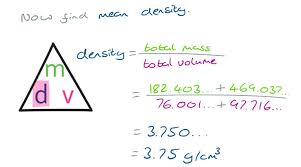 Now find mean density.
m
d v
density = total mass
total volume
= 182.403... + 469.037...
76.001... + 97.716...
= 3.750...
= 3.75 g/cm³